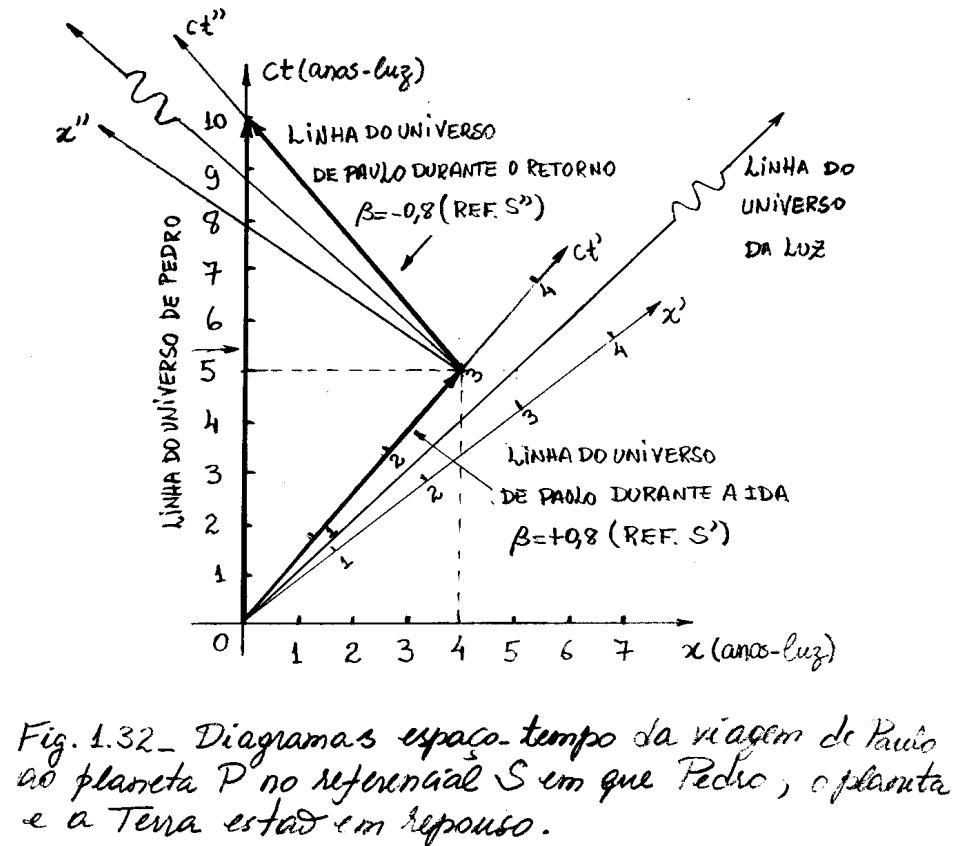 ct''
ct (anos-luz)
x''
10
9
8
7
6
5
4
3
2
1
0
LINHA DO UNIVERSO DE PEDRO
LINHA DO UNIVERSO
DE PAULO DURANTE O RETORNO
β=-0,8 (REF. S'')
LINHA DO
UNIVERSO
DA LUZ
ct'
4
3
2
1
x'
4
3
2
1
LINHA DO UNIVERSO
DE PAULO DURANTE A IDA
β=+0,8 (REF. S')
1 2 3 4 5 6 7 x (anos-luz)
Fig. 1.32_ Diagramas espaço-tempo da viagem de Paulo
ao planeta P no referencial S em que Pedro, o planeta
e a Terra estão em repouso.